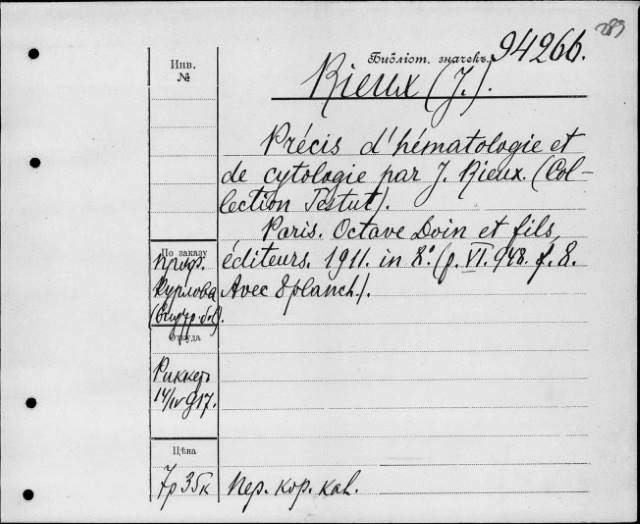 289
Библіот. значекъ. 94266.
Инв.
№
Rieux (J.).
Précis d'hématologie et
de cytologie par J. Rieux. (Col-
lection Testut).
Paris. Octave Doin et fils,
éditeurs. 1911. in 8.° (p. VI. 948. f. 8.
Avec 8 planch.).
По заказу
проф.
Курлова
Откуда
Риккеръ
14/IV 917.
Цѣна
7р35к
Пер. кор. кал.